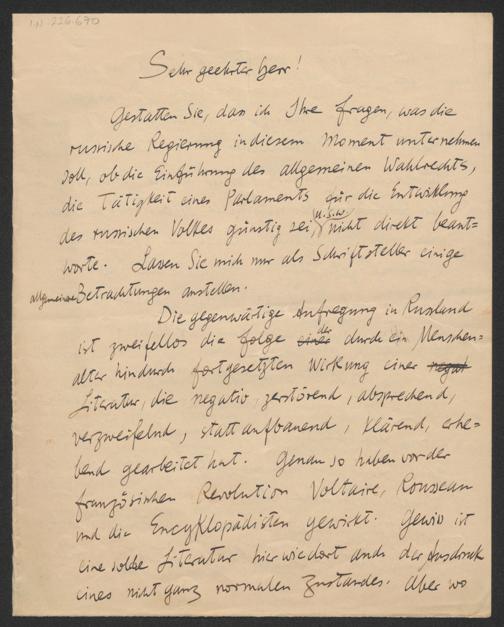 I.N. 226.670
Sehr geehrter Herr!
Gestatten Sie, dass ich Ihre Fragen, was die
russische Regierung in diesem Moment unternehmen
soll, ob die Einführung des allgemeinen Wahlrechts,
die Tätigkeit eines Parlaments für die Entwicklung
des russischen Volkes günstig sei u.s.w. nicht direkt beant=
worte. Lassen Sie mich nur als Schriftsteller einige
allgemeine Betrachtungen anstellen.
Die gegenwärtige Aufregung in Russland
ist zweifellos die Folge einer der durch ein Menschen=
alter hindurch fortgesetzten Wirkung einer negat
Literatur, die negativ, zerstörend, absprechend,
verzweifelnd, statt aufbauend, klärend, erhe=
bend gearbeitet hat. Genau so haben vor der
französischen Revolution Voltaire, Rousseau
und die Encyklopädisten gewirkt. Gewiss ist
eine solche Literatur hier wie dort auch der Ausdruck
eines nicht ganz normalen Zustandes. Aber wo